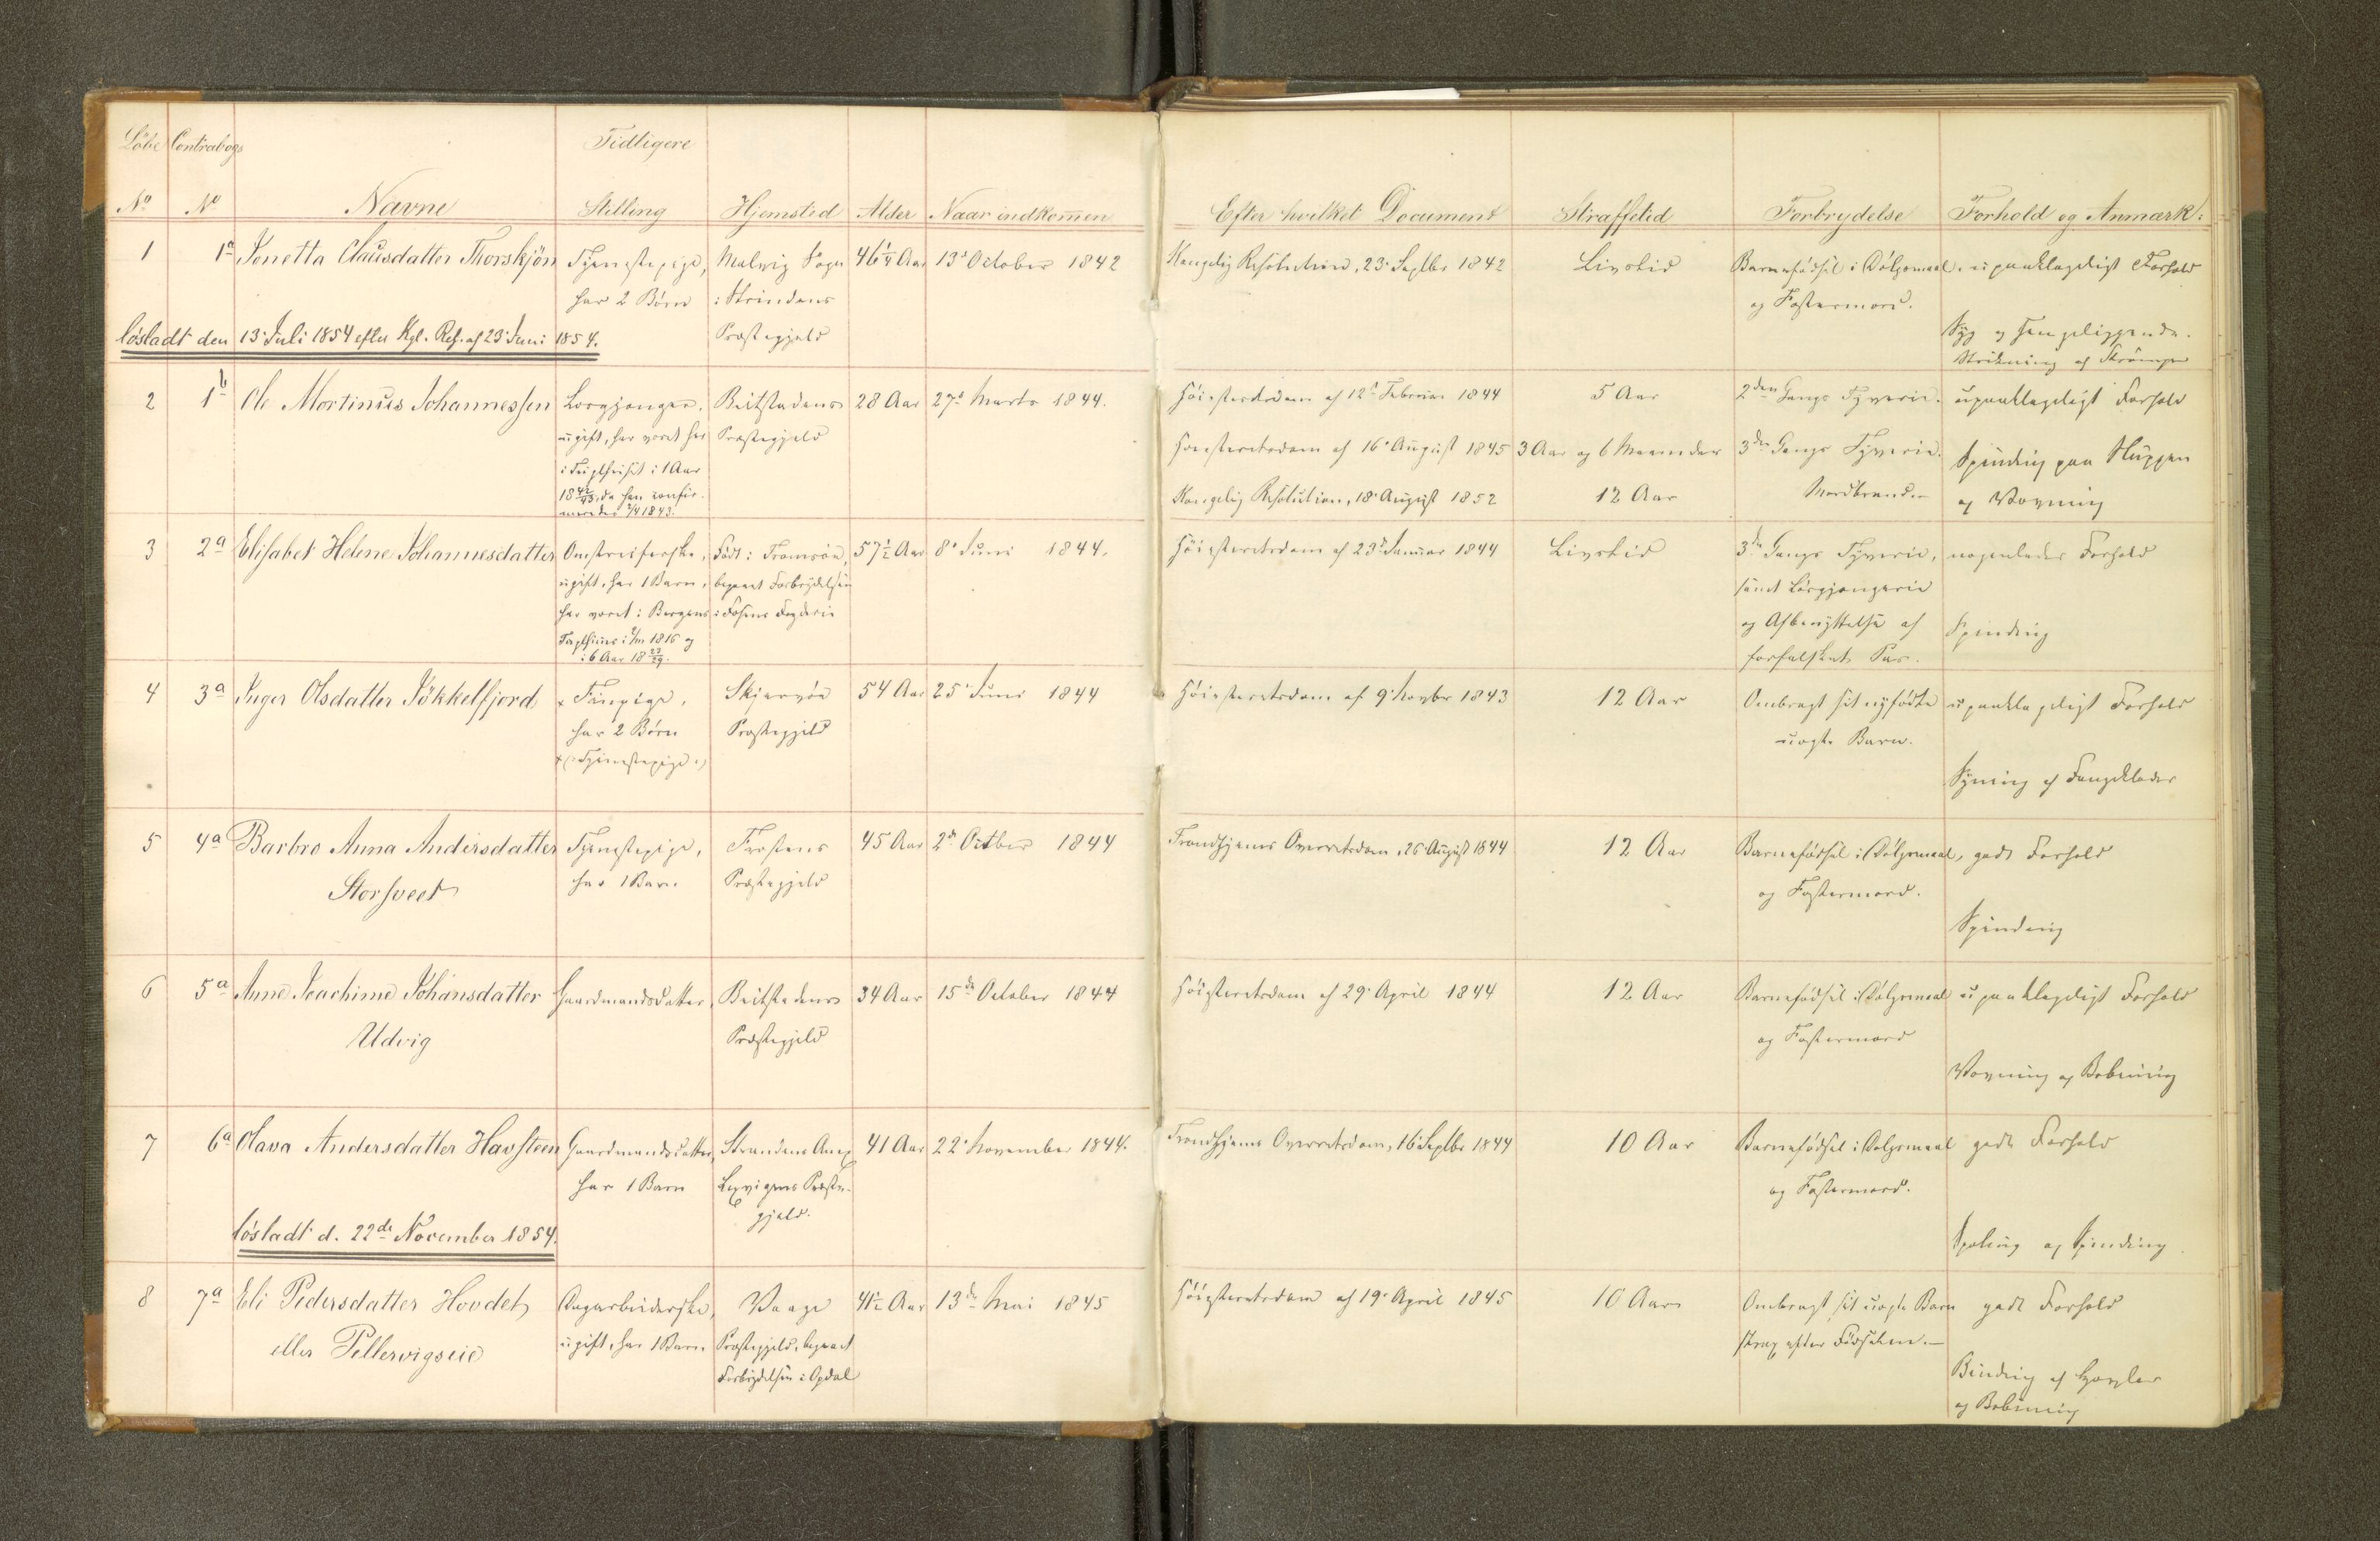 Löbe Contrabogs Tidligere
No No Navne Stilling Hjemsted Alder Naar indkommen Efter hvilket Document Straffetid Forbrydelse Forhold og Anmærk:
1 1a Jonetta Clausdatter Thorskjön Tjenestepige, Malvig Sogn 46 1/4 Aar 13de October 1842 Kongelig Resolution, 23. Septbr 1842 Livstid Barnefödsel i Dölgsmaal upaaklageligt Forhold
har 2 Börn i Strindens og Fostermord.
lösladt den 13. Juli 1854 efter Kgl. Res. af 23. Juni 1854. Præstegjeld Syg og Sengeliggende.
Strikning af Strömper
2 1b Ole Martinus Johannessen Losgjænger, Beitstadens 28 Aar 27de Marts 1844. Höiesteretsdom af 12te Februar 1844 5 Aar 2den Gangs Tyverie. upaaklageligt Forhold
ugift, har været her Præstegjeld Höiesteretsdom af 16. August 1845 3 Aar og 6 Maaneder 3die Gangs Tyverie. Spinding paa Huggen
i Tugthuset i 1 Aar
18 42/43, da han confir- Kongelig Resolution, 18. August 1852 12 Aar Mordbrand. og Vævning
meredes 2/4 1843.
3 2a Elisabet Helene Johannesdatter Omstreiferske, Födt i Tromsöe, 57 1/2 Aar 8. Juni 1844. Höiesteretsdom af 23de Januar 1844 Livstid 3die Gangs Tyverie, nogenledes Forhold
ugift, har 1 Barn, begaaet Forbrydelsen samt Lösgjængerie
har været i Bergens i Fosens Fogderie og Afbenyttelse af Spinding
Tugthuus i 1816 og
i 6 Aar 18 23/29. forfalsket Pas.
4 3a Inger Olsdatter Jökkelfjord x Tinpige, Skjervöe 54 Aar 25. Juni 1844 Höiesteretsdom af 9. Novbr 1843 12 Aar Ombragt sit nyfödte upaaklageligt Forhold
har 2 Börn Præstegjeld uægte Barn.
x (: Tjenestepige :) Syning af Fangeklæder
5 4a Barbro Anna Andersdatter Tjenestepige, Frostens 45 Aar 2de Octbr 1844 Trondhjems Overretsdom, 26. August 1844 12 Aar Barnefödsel i Dölgsmaal, godt Forhold
Storsveet har 1 Barn Præstegjeld og Fostermord.
Spinding
6 5a Anne Joachime Johansdatter Gaardmandsdatter, Beitstadens 34 Aar 15de October 1844 Höiesteretsdom af 29. April 1844 12 Aar Barnefödsel i Dölgsmaal upaaklageligt Forhold
Udvig Præstegjeld og Fostermord
Vævning og Bobining
7 6a Olava Andersdatter Havsteen Gaardmandsdatter, Strandens Anex 41 Aar 22. November 1844. Trondhjems Overretsdom, 16. Septbr 1844 10 Aar Barnefödsel i Dölgsmaal godt Forhold
har 1 Barn Lexvigens Præste- og Fostermord.
gjeld.
lösladt d. 22de November 1854. Spoling og Spinding
8 7a Eli Pedersdatter Hovdet Dagarbeiderske, Vaage 41 1/2 Aar 13de Mai 1845 Höiesteretsdom af 19. April 1845 10 Aar Ombragt sit uægte Barn godt Forhold
eller Pellervigseie ugift, har 1 Barn Præstegjeld, begaaet strax efter Födselen.
Forbrydelsen i Opdal Binding af
og Bobining